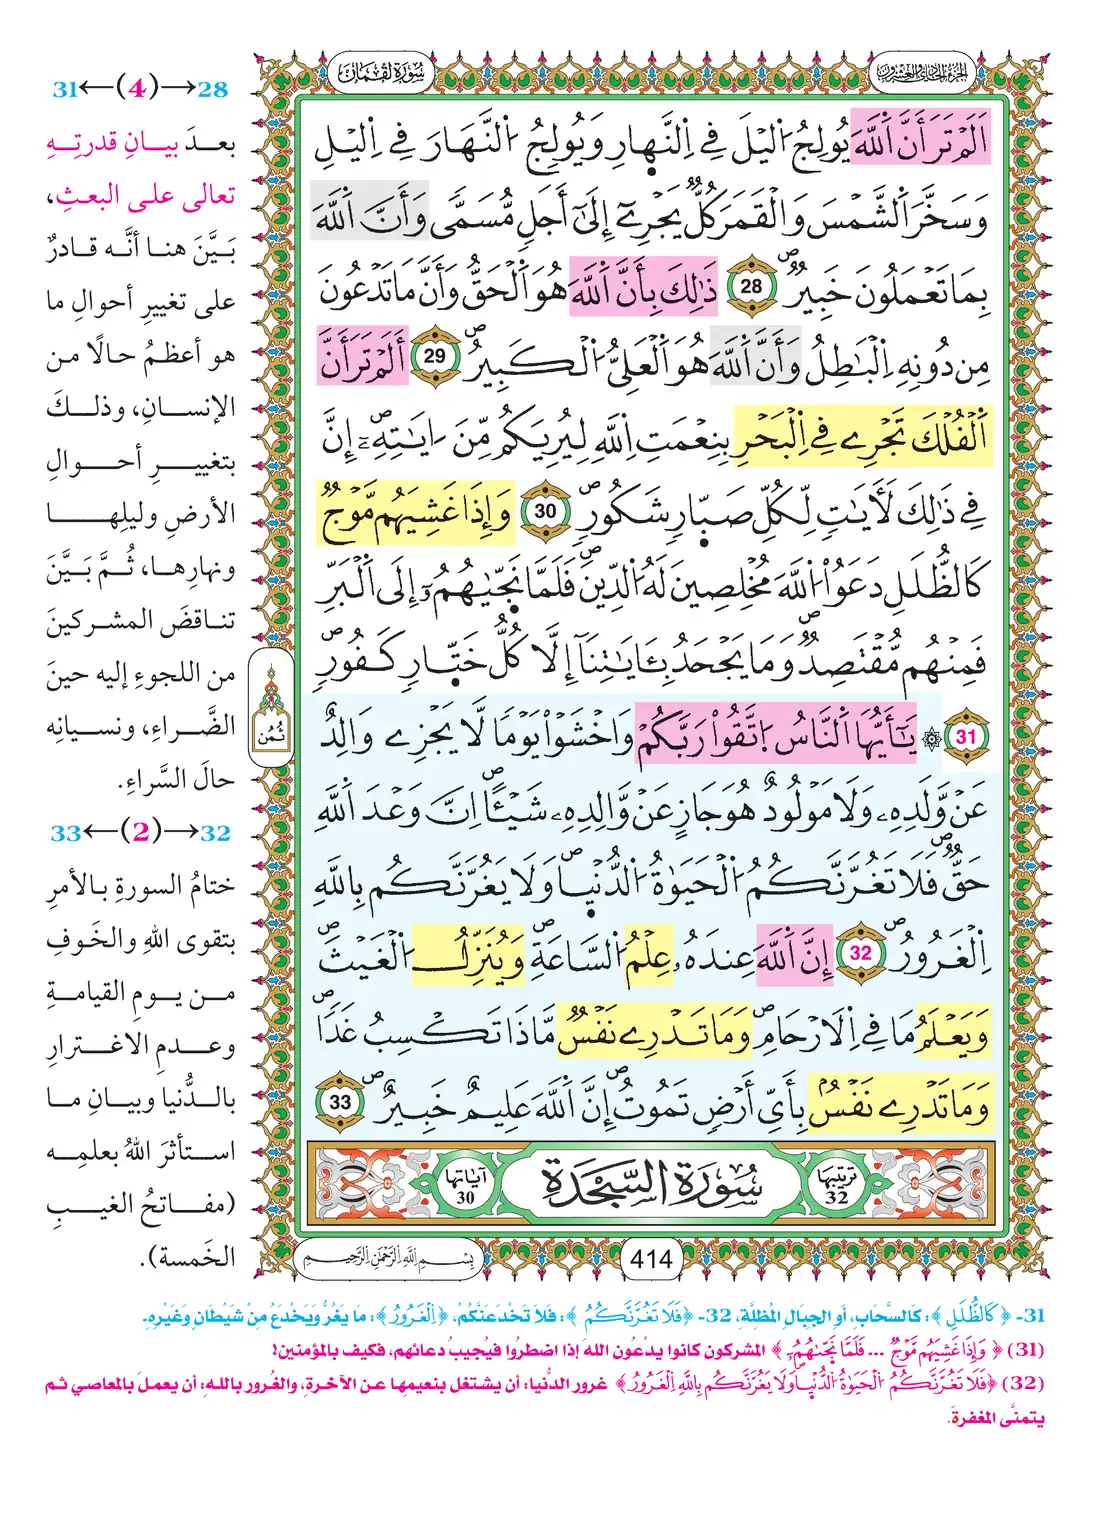 الجزء الحادي والعشرون
سورة لقمان
اَلَمْ تَرَ أَنَّ اَللَّهَ يُولِجُ اُليْلَ فِي اِلنَّهارِ وَيُولِجُ اُلنَّهَارَ فِي اِليْلِ
وَسَخَّرَ اَلشَّمْسَ وَالْقَمَرَ كُلٌّ يَجْرِے إِلَىٰ أَجَلٍ مُّسَمًّى وَأَنَّ اَللَّهَ
بِمَا تَعْمَلُونَ خَبِيرٌ 28 ذَٰلِكَ بِأَنَّ اَللَّهَ هُوَ اَلْحَقُّ وَأَنَّ مَا تَدْعُونَ
مِن دُونِهِ اِلْبَٰطِلُ وَأَنَّ اَللَّهَ هُوَ اَلْعَلِيُّ اُلْكَبِيرُ 29 أَلَمْ تَرَ أَنَّ
اَلْفُلْكَ تَجْرِے فِي اِلْبَحْرِ بِنِعْمَتِ اِللَّهِ لِيُرِيَكُم مِّنَ ءَايَٰتِهِۦٓ إِنَّ
فِي ذَٰلِكَ لَأَيَٰتٍ لِّكُلِّ صَبّارٍ شَكُورٍ 30 وَإِذَا غَشِيَهُم مَّوْجٌ
كَالظُّلَلِ دَعَوُاْ اُللَّهَ مُخْلِصِينَ لَهُ اُلدِّينَ فَلَمَّا نَجّىٰهُمُۥٓ إِلَى اَلْبَرِّ
فَمِنْهُم مُّقْتَصِدٌ وَمَا يَجْحَدُ بِـَٔايَٰتِنَآ إِلَّا كُلُّ خَتّارٍ كَفُورٍ
31 ۞ يَٰٓأَيُّهَا اَلنَّاسُ اُتَّقُواْ رَبَّكُمْ وَاخْشَوْاْ يَوْمًا لَّا يَجْزِے وَالِدٌ
عَنْ وَّلَدِهِۦ وَلَا مَوْلُودٌ هُوَ جَازٍ عَنْ وَّالِدِهِۦ شَيْـًٔا اِنَّ وَعْدَ اَللَّهِ
حَقٌّ فَلَا تَغُرَّنَّكُمُ اُلْحَيَوٰةُ اُلدُّنْيا وَلَا يَغُرَّنَّكُم بِاللَّهِ
اِلْغَرُورُ 32 إِنَّ اَللَّهَ عِندَهُۥ عِلْمُ اُلسَّاعَةِ وَيُنَزِّلُ اُلْغَيْثَ
وَيَعْلَمُ مَا فِي اِلَارْحَامِ وَمَا تَدْرِے نَفْسٌ مَّاذَا تَكْسِبُ غَدًا
وَمَا تَدْرِے نَفْسُۢ بِأَيِّ أَرْضٍ تَمُوتُ إِنَّ اَللَّهَ عَلِيمٌ خَبِيرٌ 33
ترتيبها 32 سُورَةُ السَّجْدَةِ آياتها 30
414 بِسْمِ اِللَّهِ اِلرَّحْمَٰنِ اِلرَّحِيمِ
ثُمُن
28→(4)←31
بعدَ بيانِ قدرتِهِ
تعالى على البعثِ،
بَيَّنَ هنا أنَّه قادرٌ
على تغييرِ أحوالِ ما
هو أعظمُ حالًا من
الإنسانِ، وذلكَ
بتغييرِ أحوالِ
الأرضِ وليلِها
ونهارِها، ثُمَّ بَيَّنَ
تناقضَ المشركينَ
من اللجوءِ إليه حينَ
الضَّراءِ، ونسيانِه
حالَ السَّراءِ.
32→(2)←33
ختامُ السورةِ بالأمرِ
بتقوى اللهِ والخَوفِ
من يومِ القيامةِ
وعدمِ الاغترارِ
بالدُّنيا وبيانِ ما
استأثرَ اللهُ بعلمِه
(مفاتحُ الغيبِ
الخَمسة).
31- ﴿كَالظُّلَلِ﴾: كَالسَّحَابِ، أَوِ الجِبَالِ المُظِلَّةِ، 32- ﴿فَلَا تَغُرَّنَّكُمُ﴾: فَلَا تَخْدَعَنَّكُمْ، ﴿اِلْغَرُورُ﴾: مَا يَغُرُّ وَيَخْدَعُ مِنْ شَيْطَانٍ وَغَيْرِهِ.
(31) ﴿وَإِذَا غَشِيَهُم مَّوْجٌ ... فَلَمَّا نَجّىٰهُمُۥٓ﴾ المشركون كانوا يدْعُون الله إذا اضطرُوا فيُجيبُ دعائهم، فكيف بالمؤمنين!
(32) ﴿فَلَا تَغُرَّنَّكُمُ اُلْحَيَوٰةُ اُلدُّنْيا وَلَا يَغُرَّنَّكُم بِاللَّهِ اِلْغَرُورُ﴾ غرور الدنُّيا: أن يشتغل بنعيمِها عن الآخرةِ، والغُرور باللهِ: أن يعملَ بالمعاصي ثم
يتمنَّى المغفرةَ.